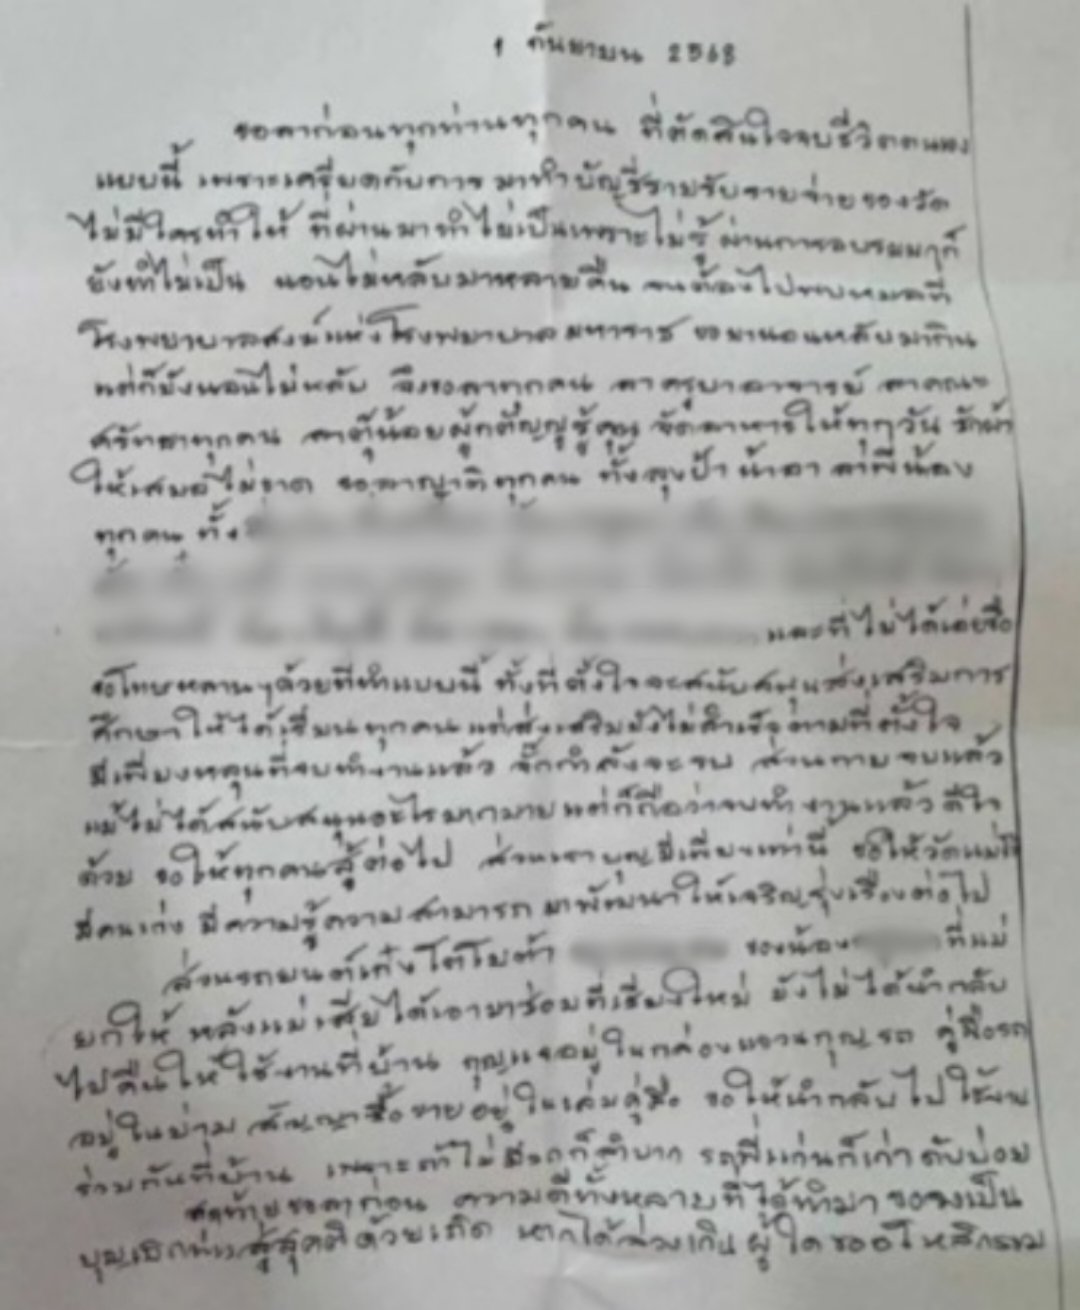 1 กันยายน 2568
ขอลาก่อนทุกท่านทุกคน ที่ตัดสินใจจบชีวิตตนเอง
แบบนี้ เพราะเครียดกับการมาทำบัญชีรายรับรายจ่ายของวัด
ไม่มีใครทำให้ ที่ผ่านมาทำไม่เป็นเพราะไม่รู้ ผ่านการอบรมมาก็
ยังทำไม่เป็น นอนไม่หลับมาหลายคืน จนต้องไปพบหมอที่
โรงพยาบาลสงฆ์แห่งโรงพยาบาลมหาราช ขอยานอนหลับมากิน
แต่ก็ยังนอนไม่หลับ จึงขอลาทุกคน ลาครูบาอาจารย์ ลาคณะ
ศรัทธาทุกคน ลาตุ๊น้อยผู้กตัญญูรู้คุณ จัดอาหารให้ทุกวัน ซักผ้า
ให้เสมอไม่ขาด ขอลาญาติทุกคน ทั้งลุงป้า น้าอา ลาพี่น้อง
ทุกคน ทั้ง
และที่ไม่ได้เอ่ยชื่อ
ขอโทษหลานๆด้วยที่ทำแบบนี้ ทั้งที่ตั้งใจจะสนับสนุนส่งเสริมการ
ศึกษาให้ได้เรียนทุกคน แต่ส่งเสริมยังไม่สำเร็จตามที่ตั้งใจ
มีเพียงหลุนที่จบทำงานแล้ว จั๊กกำลังจะจบ ส่วนกายจบแล้ว
แม้ไม่ได้สนับสนุนอะไรมากมายแต่ก็ถือว่าจบทำงานแล้ว ดีใจ
ด้วย ขอให้ทุกคนสู้ต่อไป ส่วนเราบุญมีเพียงเท่านี้ ขอให้วัดแม่
มีคนเก่ง มีความรู้ความสามารถมาพัฒนาให้เจริญรุ่งเรืองต่อไป
ส่วนรถยนต์เก๋งโตโยต้า ของน้อง ที่แม่
ยกให้ หลังแม่เสียได้เอามาซ่อมที่เชียงใหม่ ยังไม่ได้นำกลับ
ไปคืนให้ใช้งานที่บ้าน กุญแจอยู่ในกล่องแขวนกุญแจ คู่มือรถ
อยู่ในย่าม สัญญาซื้อขายอยู่ในเล่มคู่มือ ขอให้นำกลับไปใช้งาน
ร่วมกันที่บ้าน เพราะถ้าไม่มีรถก็ลำบาก รถพี่แก่นก็เก่าดับบ่อย
สุดท้ายขอลาก่อน ความดีทั้งหลายที่ได้ทำมา ขอจงเป็น
สู่สุคติด้วยเถิด หากได้ล่วงเกินผู้ใดขออโหสิกรรม